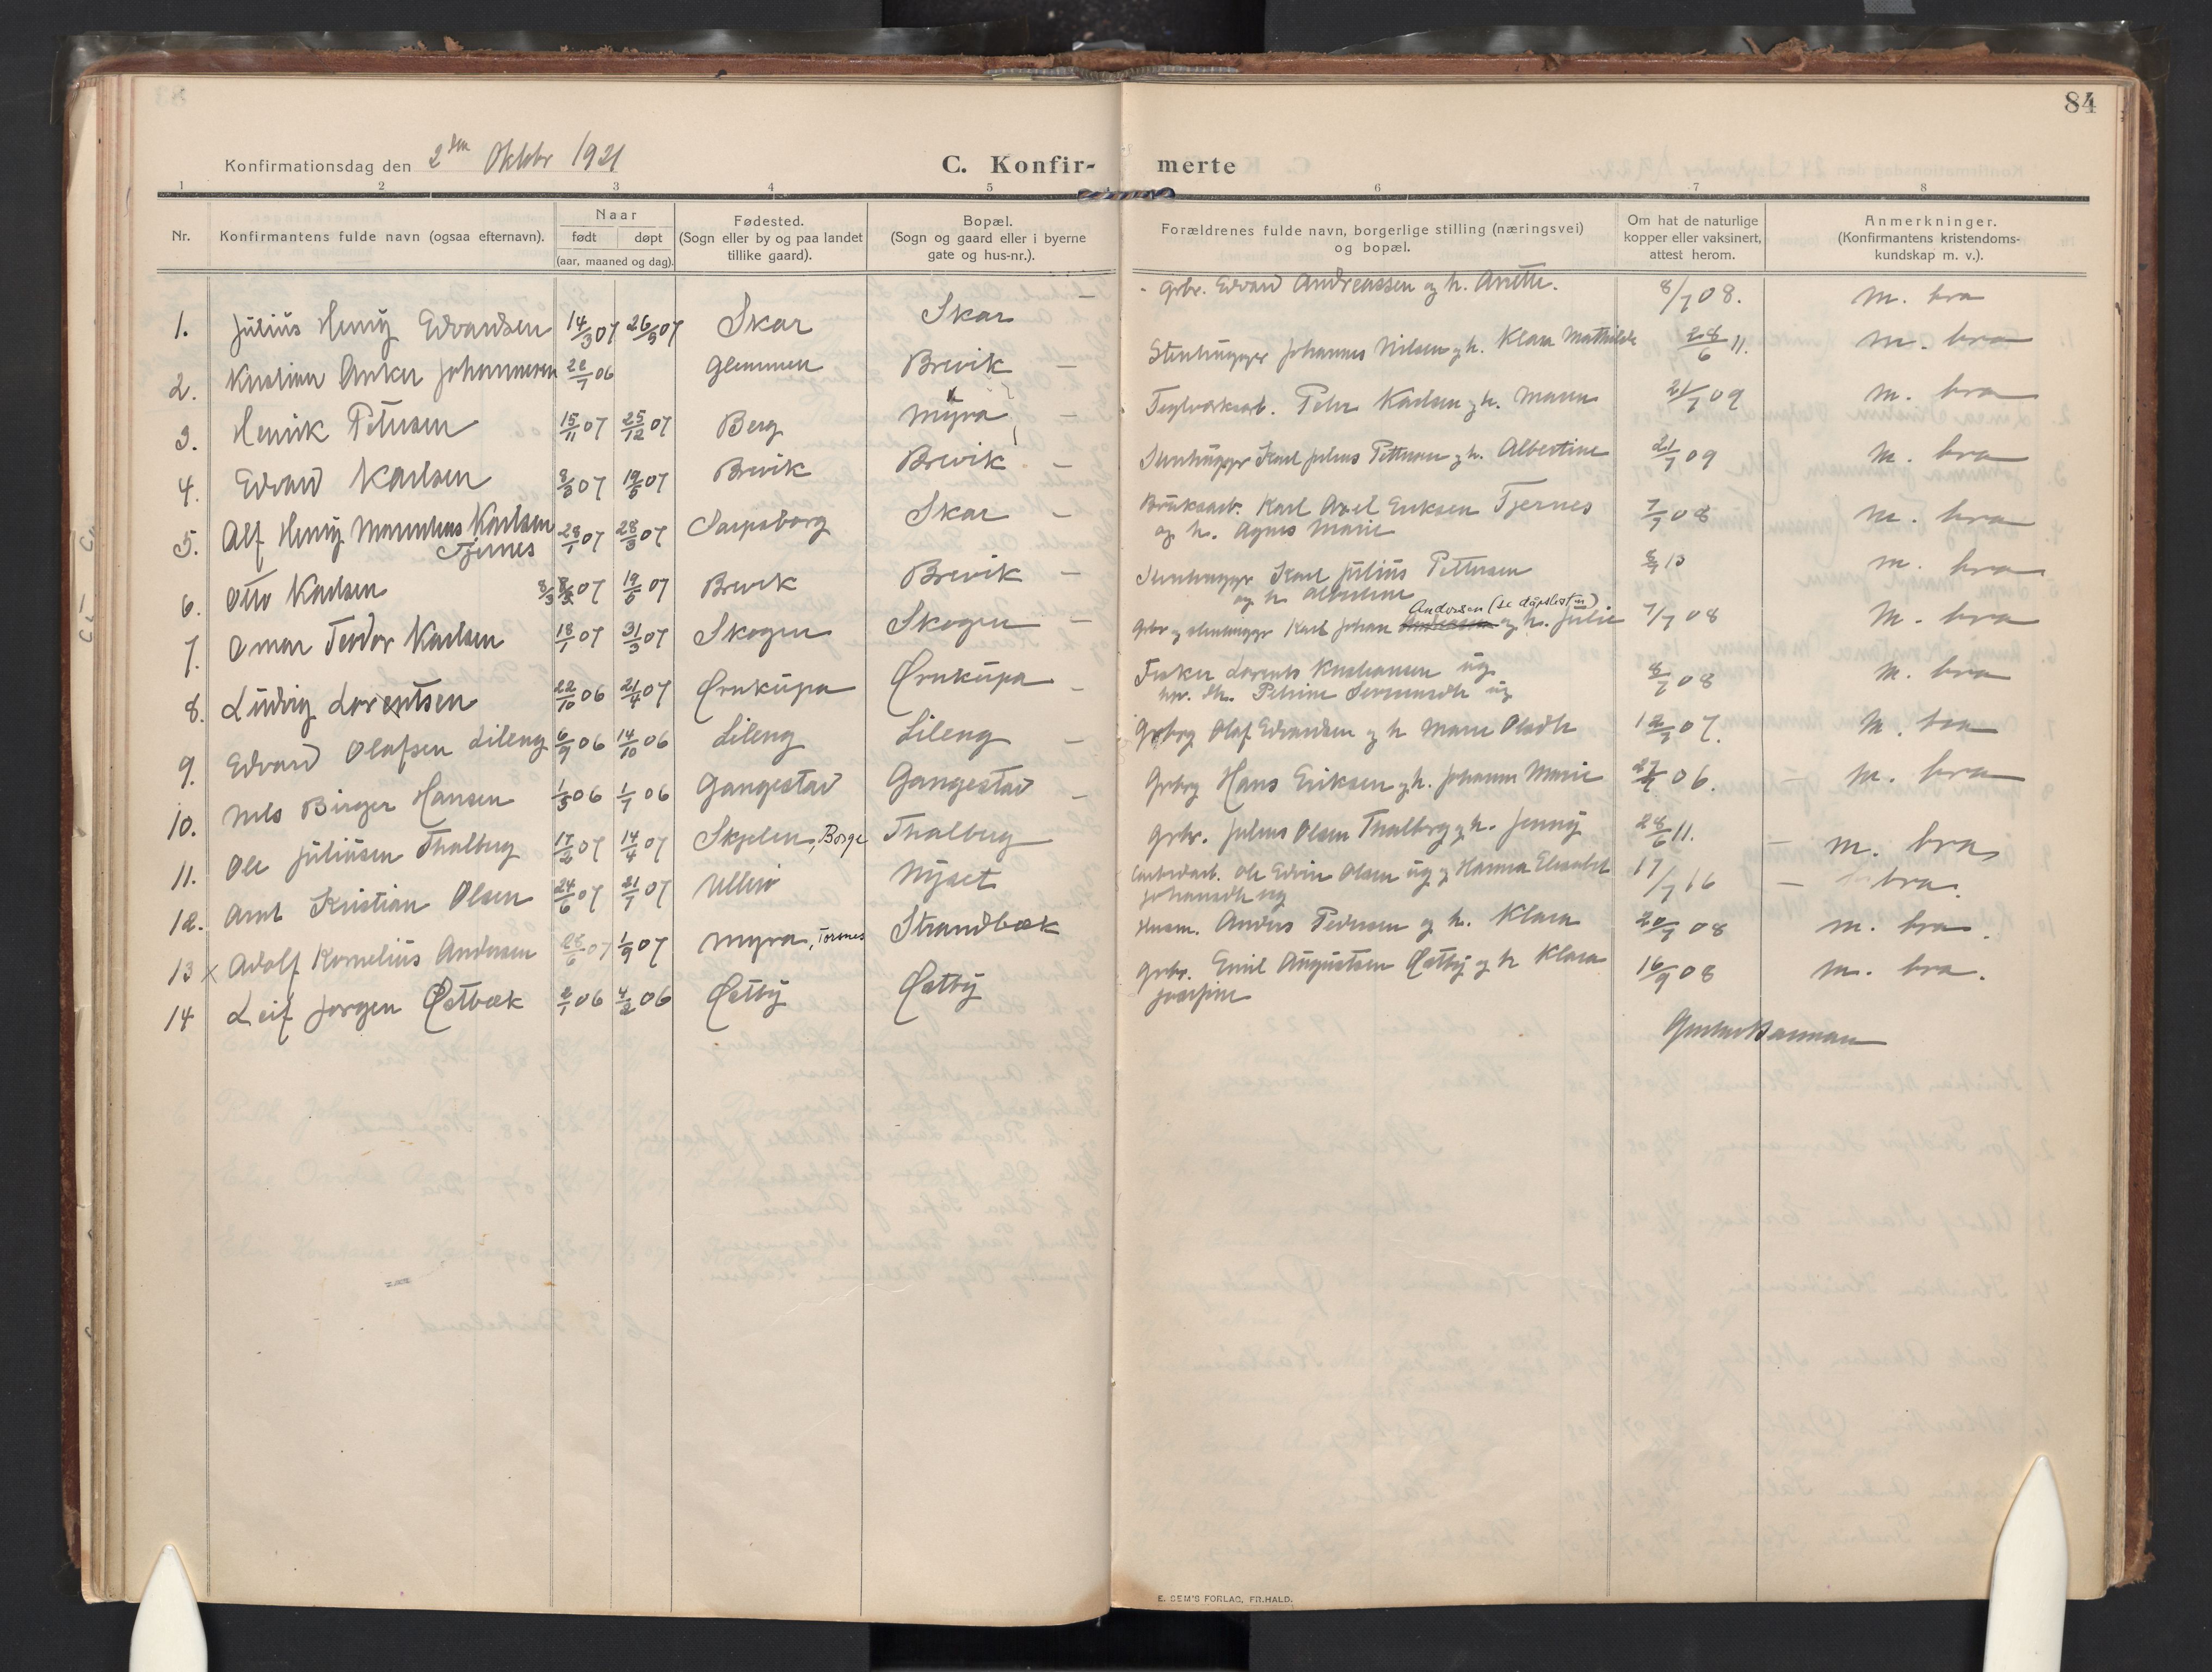 84
Konfirmationsdag den 2den Oktobr 1921
C. Konfir- merte
1 2 3 4 5 6 7 8
Nr.
Konfirmantens fulde navn (ogsaa efternavn).
Naar
født døpt
(aar, maaned og dag).
Fødested.
(Sogn eller by og paa landet
tillike gaard).
Bopæl.
(Sogn og gaard eller i byerne
gate og hus-nr.).
Forældrenes fulde navn, borgerlige stilling (næringsvei)
og bopæl.
Om hat de naturlige
kopper eller vaksinert,
attest herom.
Anmerkninger.
(Konfirmantens kristendoms-
kundskap m. v.).
1. Julius Henry Edvardsen 14/3 07 26/5 07 Skar Skar – Grbr. Edvard Andreassen og h. Anette. 8/7 08. m. bra
2. Kristian Anker Johannesen 22/7 06 Glemmen Brevik – Stenhugger Johannes Nilsen og h. Klara Mathilde 28/6 11. m. bra
3. Henrik Petersen 15/11 07 25/12 07 Berg Myra – Teglverksarb. Peter Karlsen og h. Maren 21/7 09 m. bra
4. Edvard Karlsen 8/3 07 19/5 07 Brevik Brevik – Stenhugger Karl Julius Pettersen og h. Albertine 21/7 09 m. bra
5. Alf Henry Karlsen 28/1 07 28/3 07 Sarpsborg Skar – Bruksarb. Karl Axel Eriksen Tjernes 7/7 08 m. bra
Tjernes og h. Agnes Marie
6. Otto Karlsen 8/3 8/3 07 19/5 07 Brevik Brevik – Stenhugger Karl Julius Pettersen m. bra
og h. Albertine
Andersen (se dåpslisten)
7. Omar Teodor Karlsen 18/1 07 31/3 07 Skogen Skogen – Grbr og stenhugger Karl Johan og h. Julie 7/7 08 m. bra
8. Ludvig Lorentsen 22/10 06 21/4 07 Ørnkupa Ørnkupa – Fisker Lorents Kristiansen ug 8/7 08 m. bra
Petrine ug
9. Edvard Olafsen Lileng 6/9 06 14/10 06 Lileng Lileng – Grbrg Olaf Edvardsen og h Marie Olsdtr 12/7 07. m. bra
10. Nils Birger Hansen 1/5 06 1/7 06 Gangestad Gangestad – Grbrg Hans Eriksen og h. Johanne Marie 06. – m. bra
11. Ole Juliusen Thalberg 17/2 07 14/4 07 Skjelin, Borge Thalberg Grbr. Julius Olsen Thalberg og h. Jenny 28/6 11. – m. bra
12. Arnt Kristian Olsen 24/6 07 21/7 07 Ullerø Nyset Ole Edvin Olsen ug og Hanna Elisabet 17/7 16 – bra.
Johansdtr ug
13 x Adolf Kornelius Andersen 28/6 07 1/9 07 Myra, Torsnes Strandbæk Husm. Anders Pedersen og h. Klara 20/7 08 m. bra.
14 Leif Jørgen Østbæk 2/1 06 4/2 06 Østby Østby Grbr. Emil Augustsen Østby og h Klara 16/9 08 m. bra.
Josefine
E. SEM'S FORLAG, FR.HALD.